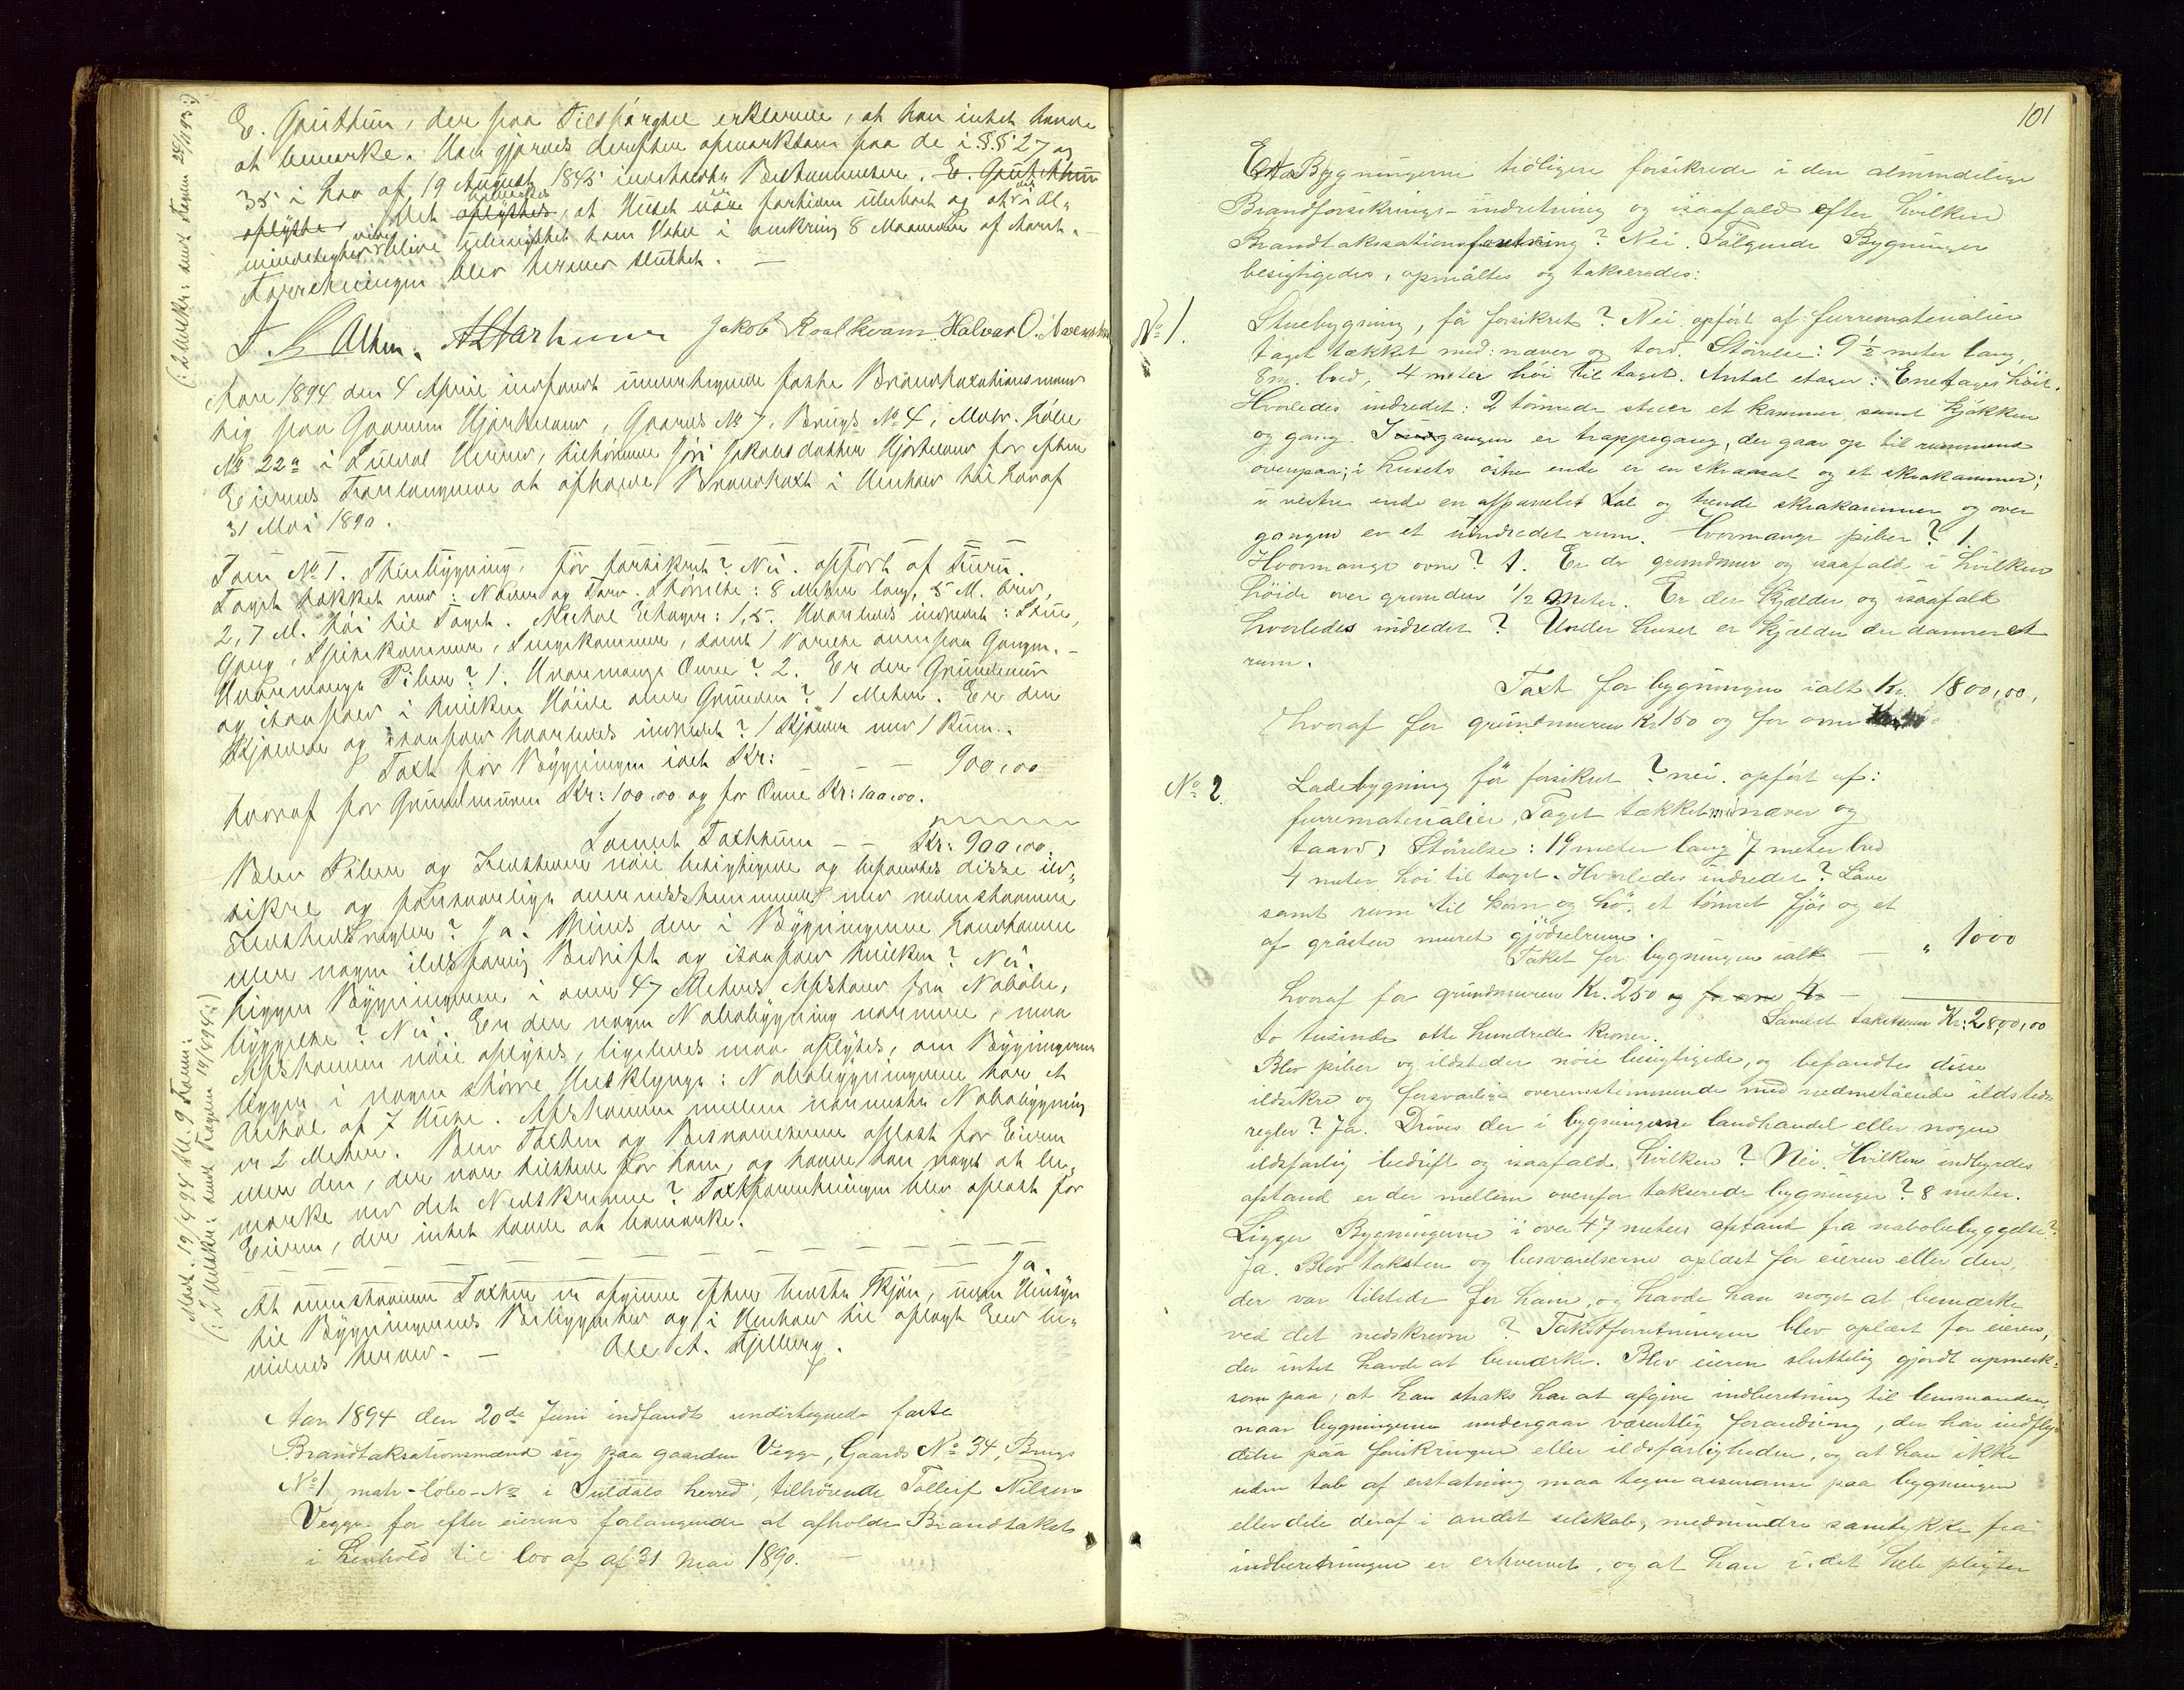 E. Guitthun, der paa Tilspørgsel erklærede, at han intet havde
at bemærke. Han gjordes derefter opmærksom paa de i §§ 27 og
35 i Lov af 19 August 1845 indeholdte Bestemmelser.
Det bemærkes, at Huset
8 Maaneder af Aaret.
Forretningen blev hermed sluttet. —
Jakob Roalkvam Halvar O.
Aar 1894 den 4 April indfandt undertegnede faste Brandtaxationsmænd
sig paa Gaarden Hjorteland, Gaards No 7, Brugs No 4, Matr. Løbe
No 22a i Suldal Herred, tilhørende Jakobsdatter Hjorteland for efter
Eierens Forlangende at afholde Brandtaxt i Henhold til Lov af
31 Mai 1890.
No 1. Stuebygning, før forsikret? Nei. opført af Furu.
Taget tækket med: Næver og Torv. Størrelse: 8 Meter lang, 5 M. bred,
2,7 M. høi til Taget. Antal Etager: 1,5. Hvorledes indredet: Stue,
Gang, Spisekammer, Sengekammer, samt 1 Værelse ovenpaa Gangen. —
Hvormange Piber? 1. Hvormange Ovne? 2. Er der Grundmur
og isaafald i hvilken Høide over Grunden? 1 Meter. Er der
Kjælder og isaafald hvorledes indredet? 1 Kjælder med 1 Rum.
Taxt for Bygningen ialt Kr: — — — 900,00
hvoraf for Grundmuren Kr: 100,00 og for Ovne Kr: 100,00.
Samlet Taxtsum — — Kr: 900,00.
Blev Piber og Ildsteder nøie besigtigede og befandtes disse ild-
sikre og forsvarlige overensstemmende med nedenstaaende
Ildstedsregler? Ja. Drives der i Bygningerne Landhandel
eller nogen ildsfarlig Bedrift og isaafald hvilken? Nei.
Ligger Bygningerne i over 47 Meters Afstand fra Nabobe-
byggelse? Nei. Er der nogen Nabobygning nærmere, maa
Afstanden nøie oplyses, ligeledes maa oplyses, om Bygningerne
ligger i nogen større Husklynge: Nabobygningerne har et
Antal af 7 Huse. Afstanden mellem nærmeste Nabobygning
er 2 Meter. Blev Taxten og Besvarelserne oplæst for Eieren
eller den, der var tilstede for ham, og havde han noget at be-
mærke ved det Nedskrevne? Taxtforretningen blev oplæst for
Eieren, der intet havde at bemærke.
Ja.
At ovenstaaende Taxter er afgivne efter bedste Skjøn, uden Hensyn
til Bygningernes Beliggenhed og i Henhold til aflagt Eed be-
vidnes herved. — Ole A. Fjelberg.
Aar 1894 den 20de Juni indfandt undertegnede faste
Brandtaksationsmænd sig paa gaarden Vegge, Gaards No 34, Brugs
No 1 matr-løbe-No i Suldals herred, tilhørende Tolleif Nilsen
Vegge for efter eierens forlangende at afholde Brandtakst
i Henhold til lov af af 31 Mai 1890. —
101
Er Bygningerne tidligere forsikrede i den almindelige
Brandforsikrings-indretning og isaafald efter hvilken
Brandtaksationsforretning? Nei. Følgende Bygninger
besigtigedes, opmåltes og takseredes:
No 1. Stuebygning, før forsikret? Nei opført af furrematerialier
taget tækket med: næver og torv. Størelse: 9 1/2 meter lang,
8 m. bred, 4 meter høi til taget. Antal etager: Enetages høit.
Hvorledes indredet: 2 tømrede stuer et kammer samt kjøkken
og gang. I gangen er trappegang, der gaar op til rummene
ovenpaa; i husets østre ende er en skraasal og et skrakammer;
i vestre ende en afpanelet Sal og tvende skrakammer og over
gangen er et uindredet rum. Hvormange piber? 1.
Hvormange ovne? 1. Er der grundmur og isaafald i hvilken
høide over grunden 1/2 Meter. Er der Kjælder og isaafald
hvorledes indredet? Under huset er kjælder der danner et
rum.
Taxt for bygningen ialt Kr. 1800,00,
hvoraf for grundmuren Kr 150 og for ovne
No 2. Ladebygning før forsikret? nei. opført af:
furrematerialier, Taget tækket med næver og
taarv, Størelse: 19 meter lang 7 meter bred
4 meter høi til taget. Hvorledes indredet? Låve
samt rum til korn og hø. et tømret fjøs og et
af gråsten muret gjødselrum.
Takst for bygningen ialt — " 1000
hvoraf for grundmuren Kr. 250 og for ovne Kr —
Samlet takstsum Kr: 2800,00
to tusinde otte hundrede kroner.
Blev piber og ildsteder nøie besigtigede, og befandtes disse
ildsikre og forsvarlige overensstemmende med nedenstående ildsteds
regler? Ja. Drives der i bygningerne landhandel eller nogen
ildsfarlig bedrift og isaafald hvilken? Nei. Hvilken indbyrdes
afstand er der mellem ovenfor takserede bygninger? 8 meter.
Ligger Bygningerne i over 47 meters afstand fra nabobebyggelse?
Ja. Blev taksten og besvarelserne oplæst for eieren eller den,
der var tilstede for ham, og havde han noget at bemærke
ved det nedskrevne? Takstforretningen blev oplæst for eieren,
der intet havde at bemærke. Blev eieren sluttelig gjordt opmærk-
som paa, at han straks har at afgive indberetning til lensmanden,
naar bygningerne undergaar væsentlig forandring, der har indfly-
delse paa forsikringen eller ildsfarligheden, og at han ikke
uden tab af erstatning maa tegne assuranse paa bygningen
eller dele deraf i andet selskab, medmindre samtykke fra
indberetningen er erhvervet, og at han i det hele pligter